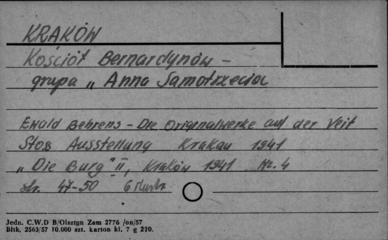 KRAKÓW
Kościół Bernardynów –
grupa „Anna Samotrzecia
Ewald Behrens – Die Originalwerke auf der Veit
Stoß Ausstellung Krakau 1941
„Die Burg" II, Kraków 1941 Nr. 4
str. 47–50 6 ilustr.
Jedn. C.W.D B/Olsztyn Zam 2776 /on/57
Bltk. 2563/57 10.000 szt. karton kl. 7 g 210.